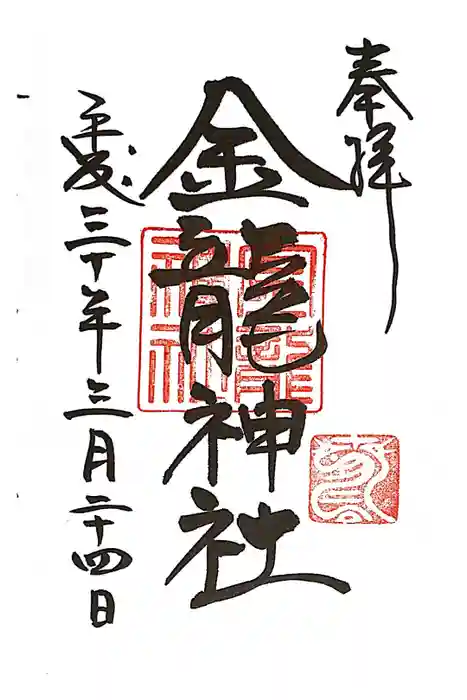 奉拝
金龍神社
平成三十年三月二十四日